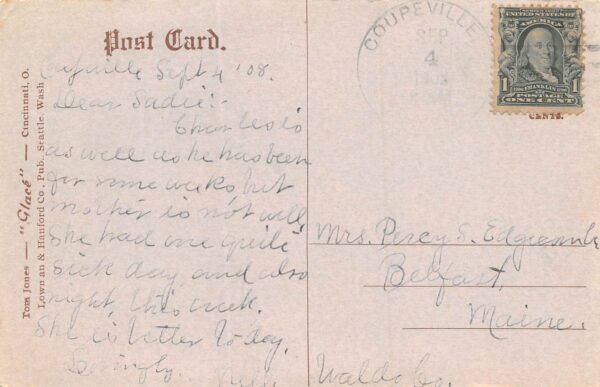 Post Card.
Coupeville Sept 4 '08.
Dear Sadie:-
Charles is
as well as he has been
for some weeks but
mother is not well
She had one quite
sick day and also
night, this week.
She is better to day.
Lovingly.
Tom Jones — "Glacé" — Cincinnati, O.
Lowman & Hanford Co. Pub. Seattle, Wash
COUPEVILLE
SEP
4
UNITED STATES OF
AMERICA
FRANKLIN
POSTAGE
1 ONE CENT 1
CENTS.
Mrs. Percy S. Edgecomb
Belfast,
Maine.
Waldo Co.